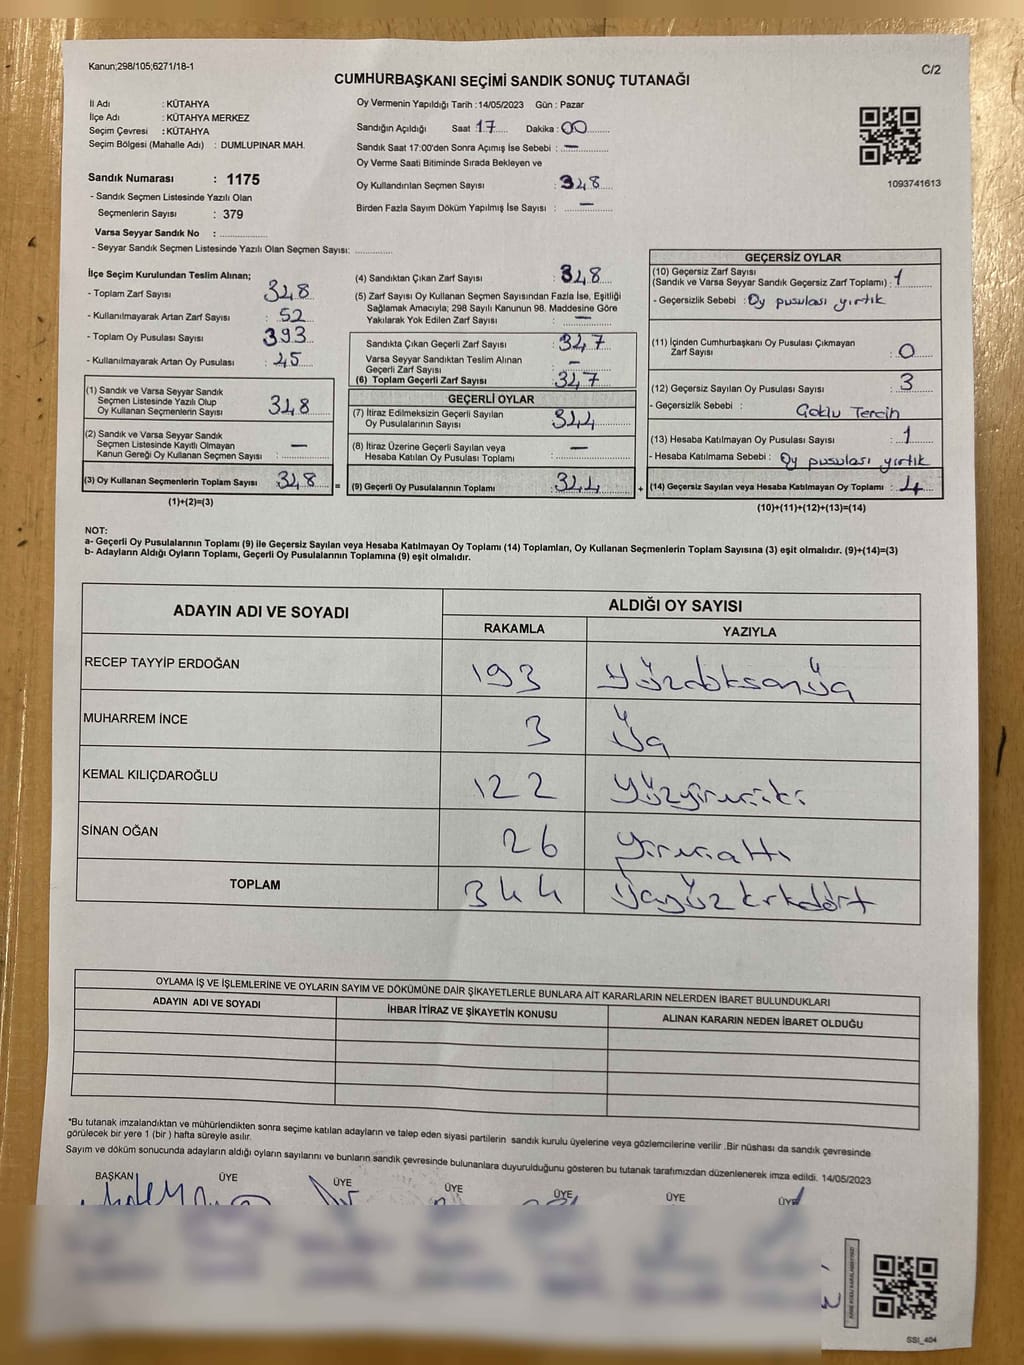 Kanun;298/105;6271/18-1
C/2
CUMHURBAŞKANI SEÇİMİ SANDIK SONUÇ TUTANAĞI
İl Adı : KÜTAHYA
İlçe Adı : KÜTAHYA MERKEZ
Seçim Çevresi : KÜTAHYA
Seçim Bölgesi (Mahalle Adı) : DUMLUPINAR MAH.
Sandık Numarası : 1175
- Sandık Seçmen Listesinde Yazılı Olan
Seçmenlerin Sayısı : 379
Varsa Seyyar Sandık No :
- Seyyar Sandık Seçmen Listesinde Yazılı Olan Seçmen Sayısı:
Oy Vermenin Yapıldığı Tarih :14/05/2023 Gün : Pazar
Sandığın Açıldığı Saat 17 Dakika : 00
Sandık Saat 17:00'den Sonra Açımış İse Sebebi : —
Oy Verme Saati Bitiminde Sırada Bekleyen ve
Oy Kullandırılan Seçmen Sayısı : 348
Birden Fazla Sayım Döküm Yapılmış İse Sayısı : —
1093741613
İlçe Seçim Kurulundan Teslim Alınan;
- Toplam Zarf Sayısı : 348
- Kullanılmayarak Artan Zarf Sayısı : 52
- Toplam Oy Pusulası Sayısı : 393
- Kullanılmayarak Artan Oy Pusulası : 45
(1) Sandık ve Varsa Seyyar Sandık
Seçmen Listesinde Yazılı Olup
Oy Kullanan Seçmenlerin Sayısı : 348
(2) Sandık ve Varsa Seyyar Sandık
Seçmen Listesinde Kayıtlı Olmayan
Kanun Gereği Oy Kullanan Seçmen Sayısı : —
(3) Oy Kullanan Seçmenlerin Toplam Sayısı : 348
(1)+(2)=(3)
(4) Sandıktan Çıkan Zarf Sayısı : 348
(5) Zarf Sayısı Oy Kullanan Seçmen Sayısından Fazla İse, Eşitliği
Sağlamak Amacıyla; 298 Sayılı Kanunun 98. Maddesine Göre
Yakılarak Yok Edilen Zarf Sayısı : —
Sandıkta Çıkan Geçerli Zarf Sayısı : 347
Varsa Seyyar Sandıktan Teslim Alınan
Geçerli Zarf Sayısı : —
(6) Toplam Geçerli Zarf Sayısı : 347
GEÇERLİ OYLAR
(7) İtiraz Edilmeksizin Geçerli Sayılan
Oy Pusulalarının Sayısı : 344
(8) İtiraz Üzerine Geçerli Sayılan veya
Hesaba Katılan Oy Pusulası Toplamı : —
= (9) Geçerli Oy Pusulalarının Toplamı : 344 +
GEÇERSİZ OYLAR
(10) Geçersiz Zarf Sayısı
(Sandık ve Varsa Seyyar Sandık Geçersiz Zarf Toplamı) : 1
- Geçersizlik Sebebi : Oy pusulası yırtık
(11) İçinden Cumhurbaşkanı Oy Pusulası Çıkmayan
Zarf Sayısı : 0
(12) Geçersiz Sayılan Oy Pusulası Sayısı : 3
- Geçersizlik Sebebi : Çoklu Tercih
(13) Hesaba Katılmayan Oy Pusulası Sayısı : 1
- Hesaba Katılmama Sebebi : Oy pusulası yırtık
(14) Geçersiz Sayılan veya Hesaba Katılmayan Oy Toplamı : 4
(10)+(11)+(12)+(13)=(14)
NOT:
a- Geçerli Oy Pusulalarının Toplamı (9) ile Geçersiz Sayılan veya Hesaba Katılmayan Oy Toplamı (14) Toplamları, Oy Kullanan Seçmenlerin Toplam Sayısına (3) eşit olmalıdır. (9)+(14)=(3)
b- Adayların Aldığı Oyların Toplamı, Geçerli Oy Pusulalarının Toplamına (9) eşit olmalıdır.
ADAYIN ADI VE SOYADI ALDIĞI OY SAYISI
RAKAMLA YAZIYLA
RECEP TAYYİP ERDOĞAN 193 Yüzdoksanüç
MUHARREM İNCE 3 Üç
KEMAL KILIÇDAROĞLU 122 Yüzyirmiiki
SİNAN OĞAN 26 Yirmialtı
TOPLAM 344 Üçyüzkırkdört
OYLAMA İŞ VE İŞLEMLERİNE VE OYLARIN SAYIM VE DÖKÜMÜNE DAİR ŞİKAYETLERLE BUNLARA AİT KARARLARIN NELERDEN İBARET BULUNDUKLARI
ADAYIN ADI VE SOYADI İHBAR İTİRAZ VE ŞİKAYETİN KONUSU ALINAN KARARIN NEDEN İBARET OLDUĞU
*Bu tutanak imzalandıktan ve mühürlendikten sonra seçime katılan adayların ve talep eden siyasi partilerin sandık kurulu üyelerine veya gözlemcilerine verilir .Bir nüshası da sandık çevresinde
görülecek bir yere 1 (bir ) hafta süreyle asılır.
Sayım ve döküm sonucunda adayların aldığı oyların sayılarını ve bunların sandık çevresinde bulunanlara duyurulduğunu gösteren bu tutanak tarafımızdan düzenlenerek imza edildi. 14/05/2023
BAŞKAN ÜYE ÜYE ÜYE ÜYE ÜYE ÜYE
SSI_404